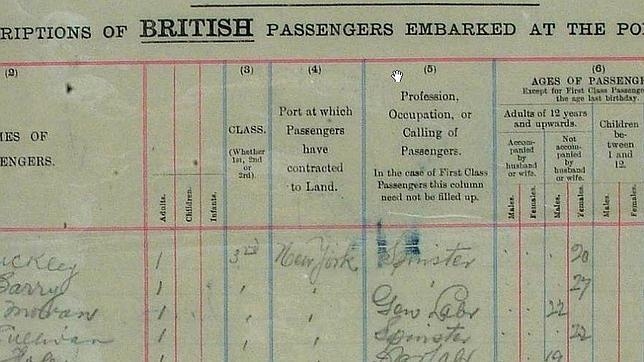 RIPTIONS OF BRITISH PASSENGERS EMBARKED AT THE PO
(2) (3) (4) (5) (6)
MES OF
ENGERS.
Adults.
Children.
Infants.
CLASS.
(Whether
1st, 2nd
or
3rd).
Port at which
Passengers
have
contracted
to Land.
Profession,
Occupation, or
Calling of
Passengers.
In the case of First Class
Passengers this column
need not be filled up.
AGES OF PASSENG
Except for First Class Passenge
the age last birthday.
Adults of 12 years
and upwards.
Accom-
panied by
husband
or wife.
Not
accom-
panied
by
husband
or wife.
Children
be-
tween
1 and
12.
Males.
Females.
Males.
Females.
Males.
Females.
uckley 1 3rd New York Spinster 20
Barry 1 " " 27
Moran 1 " " Gen Labr 22
Sullivan 1 " " Spinster 22
1 19